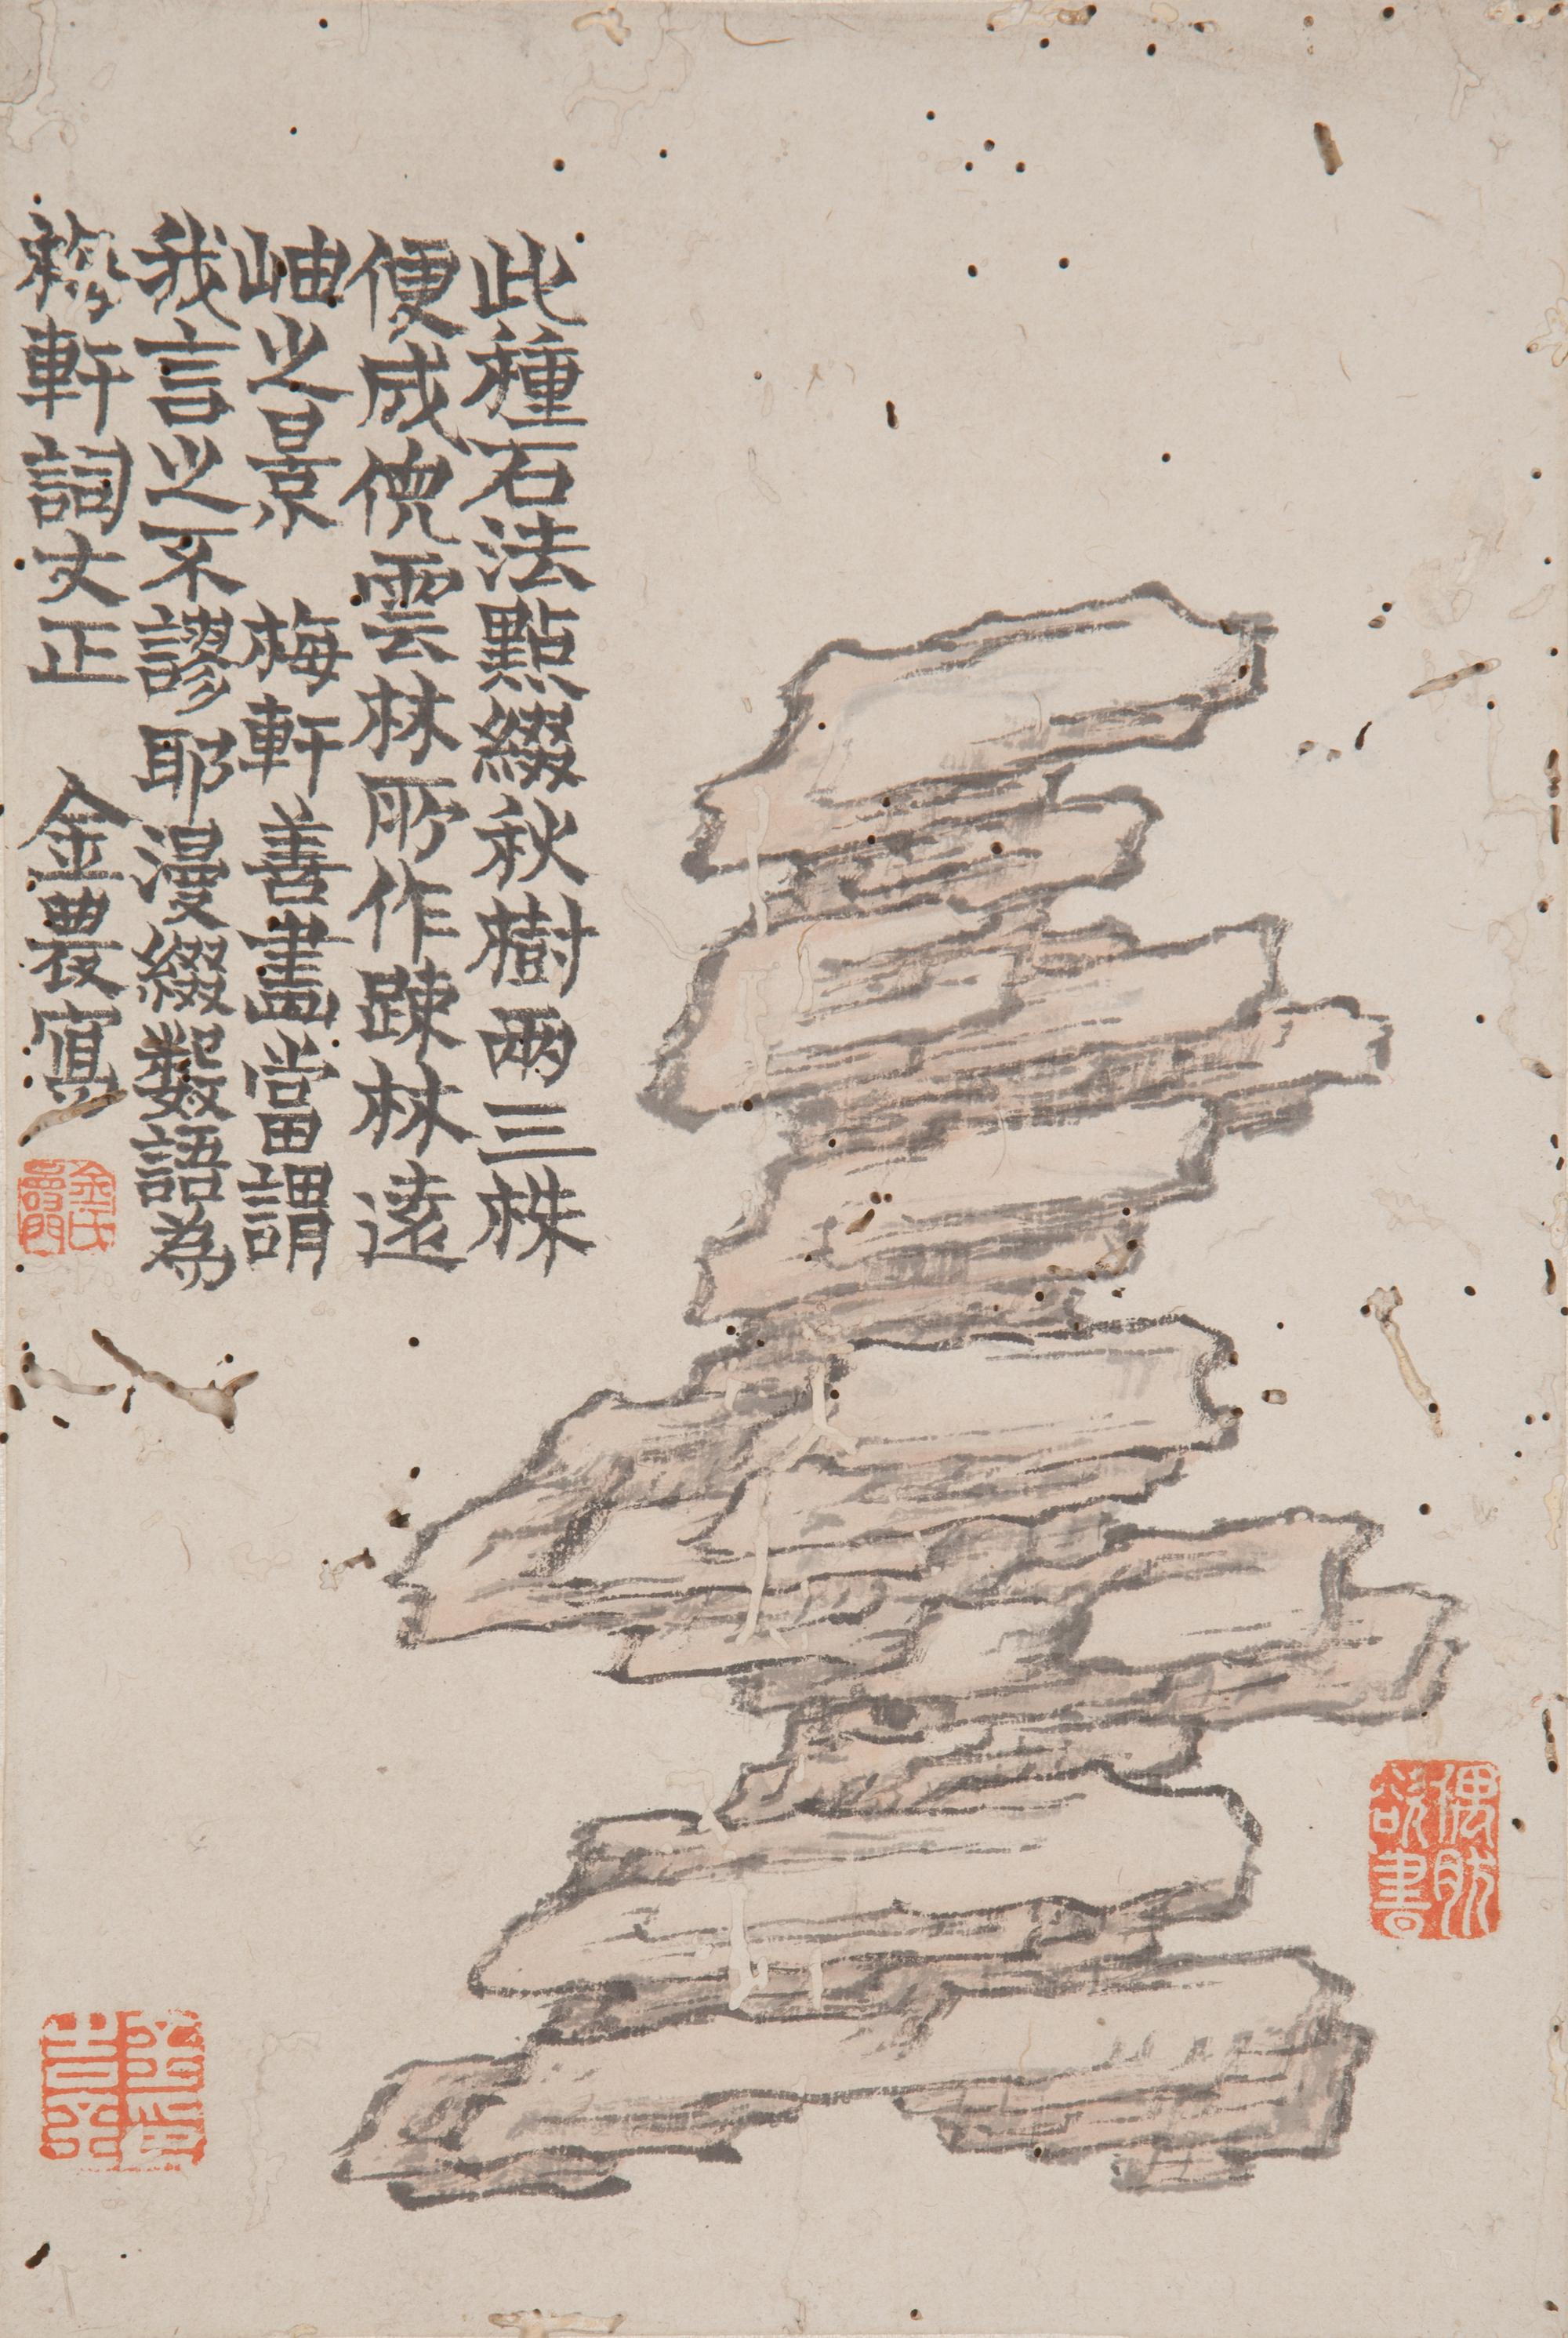 此種石法點綴秋樹兩三株
便成倪雲林所作踈林遠
岫之景 梅軒善畫當謂
我言之不謬耶漫綴數語為
軒詞丈正 金農
金氏壽門
偶肰欲書